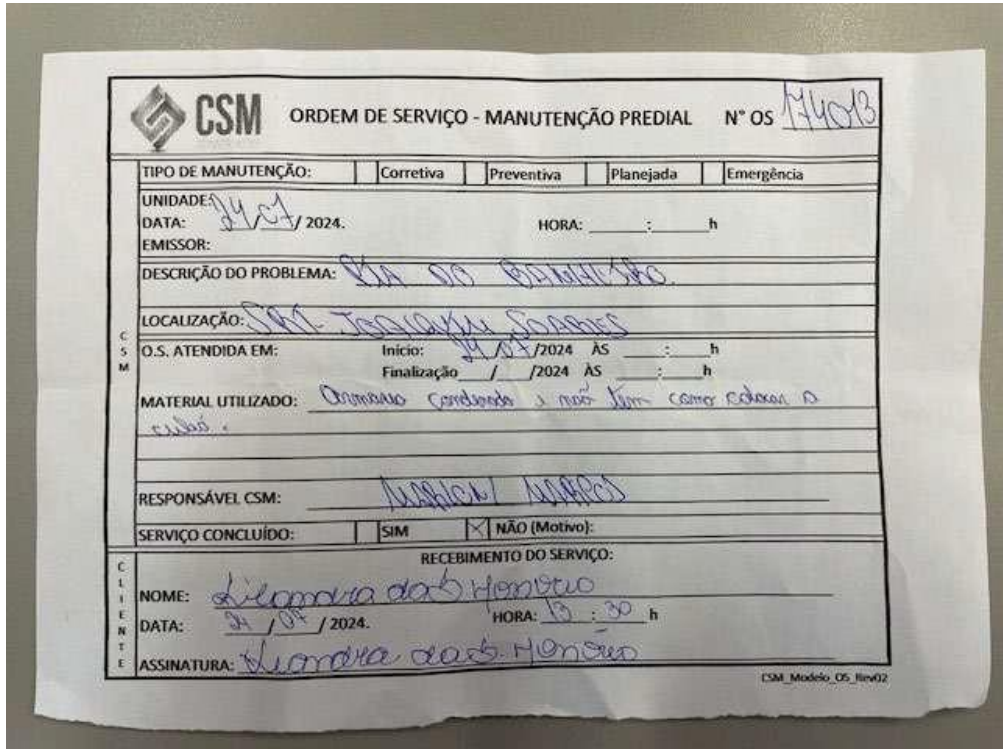 CSM ORDEM DE SERVIÇO - MANUTENÇÃO PREDIAL N° OS 174013
TIPO DE MANUTENÇÃO: Corretiva Preventiva Planejada Emergência
UNIDADE:
DATA: 24/07/2024. HORA: ____:____h
EMISSOR:
DESCRIÇÃO DO PROBLEMA: PIA DO BANHEIRO.
LOCALIZAÇÃO: SRT JOAQUIM SOARES
O.S. ATENDIDA EM: Início: 24/07/2024 ÀS ____:____h
Finalização ___/___/2024 ÀS ____:____h
MATERIAL UTILIZADO: Armario condenado e não tem como colocar a
cuba.
RESPONSÁVEL CSM: MARCOS
SERVIÇO CONCLUÍDO: SIM X NÃO (Motivo):
RECEBIMENTO DO SERVIÇO:
NOME: das Honório
DATA: 24/07/2024. HORA: 13:30 h
ASSINATURA: das Honório
CSM
CLIENTE
CSM_Modelo_OS_Rev02